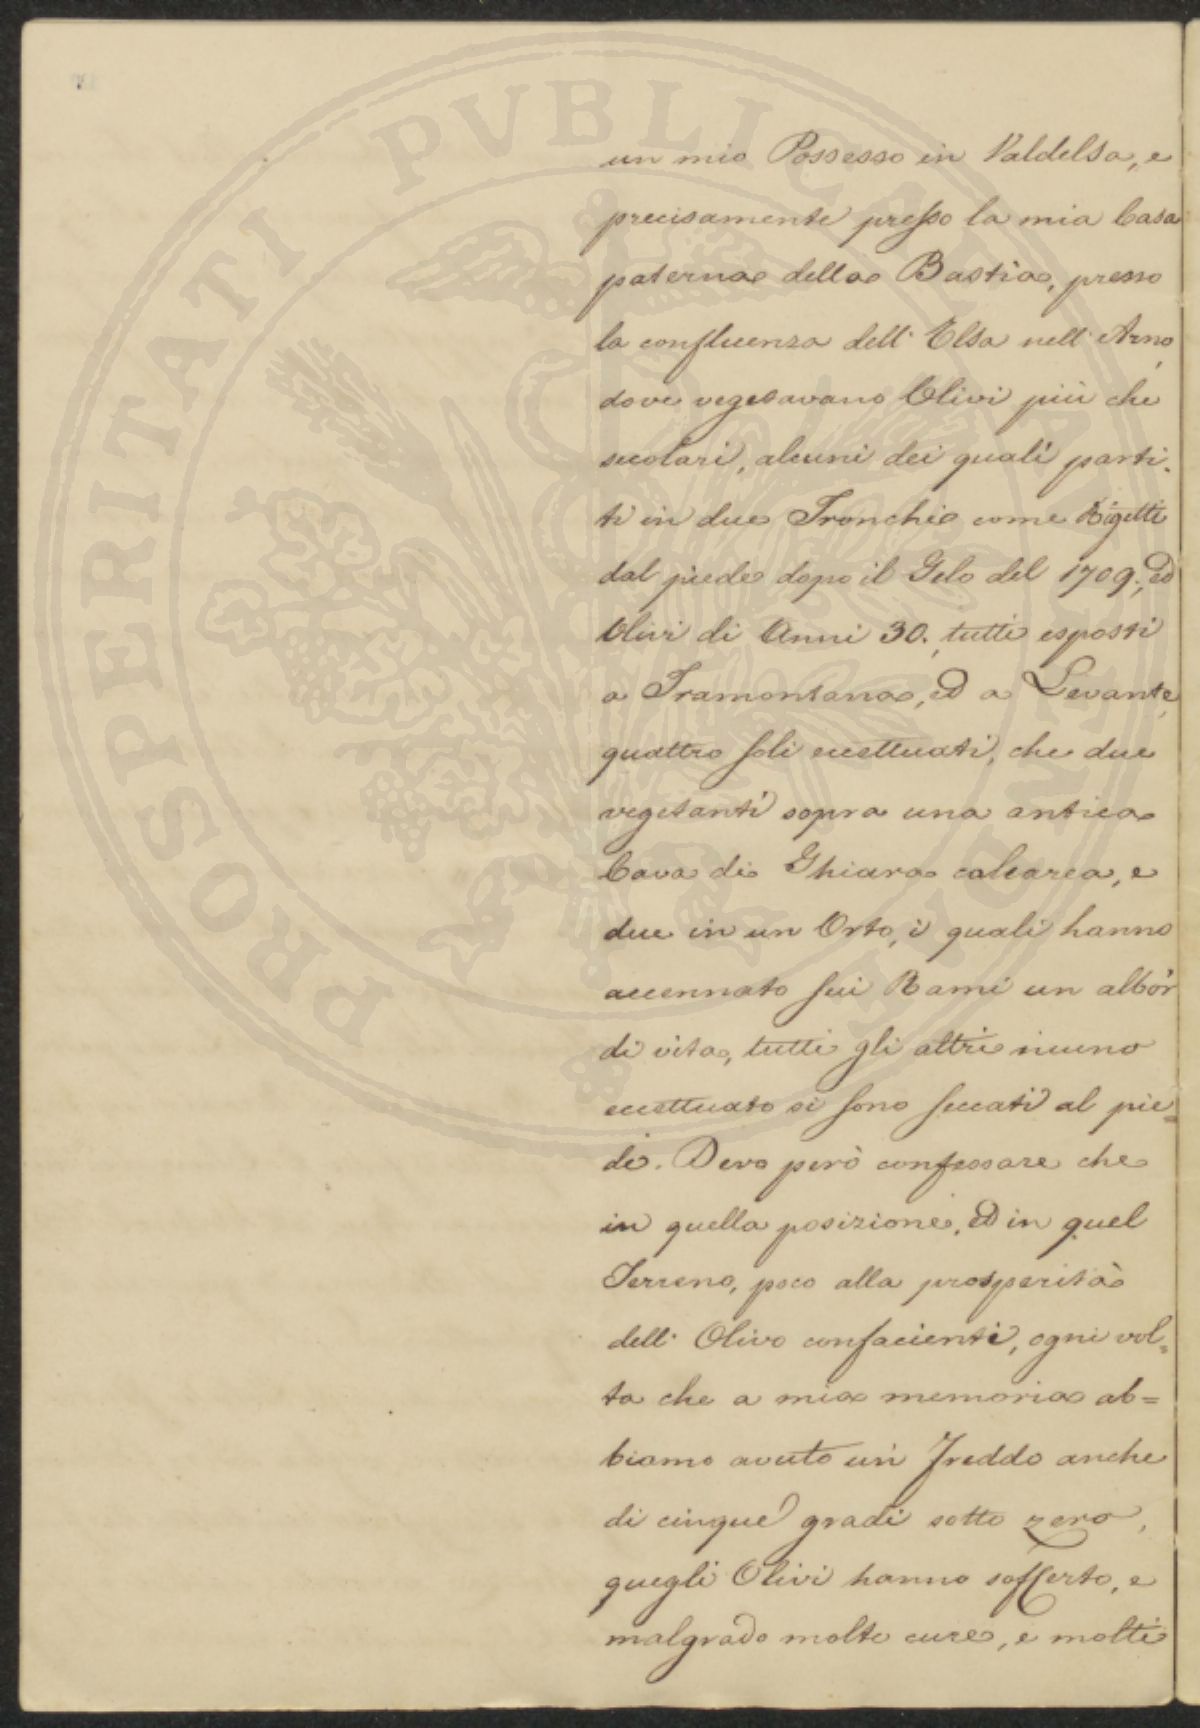 un mio Possesso in Valdelsa, e
precisamente presso la mia Casa
paterna della Bastia, presso
la confluenza dell' Elsa nell' Arno,
dove vegetavano Olivi più che
secolari, alcuni dei quali parti-
ti in due Tronchi come Rigetti
dal piede dopo il Gelo del 1709., ed
Olivi di Anni 30., tutti esposti
a Tramontana, ed a Levante,
quattro soli eccettuati, che due
vegetanti sopra una antica
Cava di Ghiara calcarea, e
due in un Orto, i quali hanno
accennato sui Rami un albòr
di vita, tutti gli altri niuno
eccettuato si sono seccati al pie=
de. Devo però confessare che
in quella posizione, ed in quel
Terreno, poco alla prosperità
dell' Olivo confacienti, ogni vol=
ta che a mia memoria ab=
biamo avuto un Freddo anche
di cinque gradi sotto zero,
quegli Olivi hanno sofferto, e
malgrado molte cure, e molti
PROSPERITATI PVBLICAE AVGENDAE